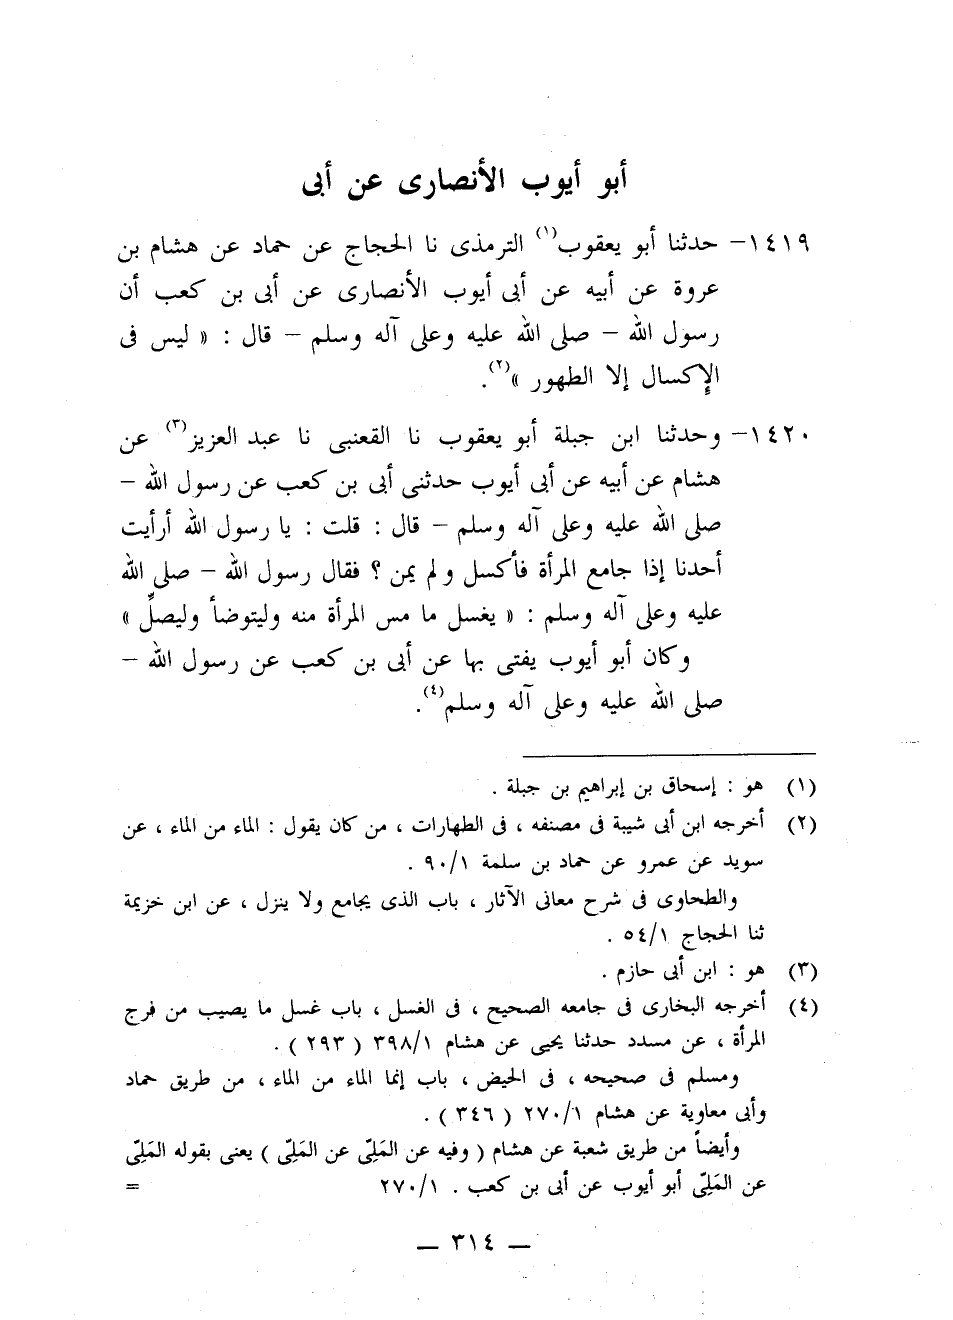 أبو أيوب الأنصارى عن أبى
١٤١٩- حدثنا أبو يعقوب(١) الترمذى نا الحجاج عن حماد عن هشام بن
عروة عن أبيه عن أبى أيوب الأنصارى عن أبى بن كعب أن
رسول الله – صلى الله عليه وعلى آله وسلم – قال : « ليس فى
الإكسال إلا الطهور »(٢).
١٤٢٠- وحدثنا ابن جبلة أبو يعقوب نا القعنبى نا عبد العزيز(٣) عن
هشام عن أبيه عن أبى أيوب حدثنى أبى بن كعب عن رسول الله –
صلى الله عليه وعلى آله وسلم – قال : قلت : يا رسول الله أرأيت
أحدنا إذا جامع المرأة فأكسل ولم يمن ؟ فقال رسول الله – صلى الله
عليه وعلى آله وسلم : « يغسل ما مس المرأة منه وليتوضأ وليصلِّ »
وكان أبو أيوب يفتى بها عن أبى بن كعب عن رسول الله –
صلى الله عليه وعلى آله وسلم(٤).
(١) هو : إسحاق بن إبراهيم بن جبلة .
(٢) أخرجه ابن أبى شيبة فى مصنفه ، فى الطهارات ، من كان يقول : الماء من الماء ، عن
سويد عن عمرو عن حماد بن سلمة ٩٠/١ .
والطحاوى فى شرح معانى الآثار ، باب الذى يجامع ولا ينزل ، عن ابن خزيمة
ثنا الحجاج ٥٤/١ .
(٣) هو : ابن أبى حازم .
(٤) أخرجه البخارى فى جامعه الصحيح ، فى الغسل ، باب غسل ما يصيب من فرج
المرأة ، عن مسدد حدثنا يحيى عن هشام ٣٩٨/١ ( ٢٩٣ ) .
ومسلم فى صحيحه ، فى الحيض ، باب إنما الماء من الماء ، من طريق حماد
وأبى معاوية عن هشام ٢٧٠/١ ( ٣٤٦ ) .
وأيضاً من طريق شعبة عن هشام ( وفيه عن المَلِىّ عن المَلِىّ ) يعنى بقوله المَلِىّ
عن المَلِىّ أبو أيوب عن أبى بن كعب . ٢٧٠/١ =
– ٣١٤ –